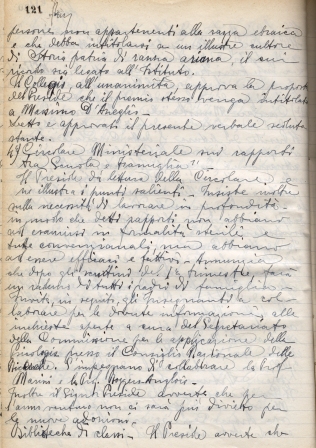 121
persone non appartenenti alla razza ebraica
e che debba intitolarsi a un illustre cultore
di Storia patria di razza ariana, il cui
nome sia legato all'Istituto.
Il Collegio, all'unanimità, approva la proposta
del Preside che il premio stesso venga intitolato
a Massimo D'Azeglio.
Letto e approvato il presente verbale seduta
stante.
Circolare Ministeriale sui rapporti
tra Scuola e Famiglia.
Il Preside dà lettura della Circolare e
ne illustra i punti salienti. Insiste molto
sulla necessità di lavorare in profondità
in modo che detti rapporti non abbiano
ad esaurirsi in formalità sterili e
tutte convenzionali, ma abbiano
ad essere efficaci e fattivi. Annunzia
che dopo gli scrutini del 1° trimestre, farà
un raduno di tutti i padri di famiglia
invita, in seguito, gli insegnanti a col-
laborare per le dovute informazioni, alle
inchieste aperte a cura del Segretariato
della Commissione per l'applicazione della
presso il Consiglio Nazionale delle
Ricerche. S'impegnano di collaborare la Prof
Manni e la Prof.
Inoltre il Signor Preside avverte che per
l'anno venturo non ci sarà più divieto per
le nuove adozioni.
Biblioteche di classi. Il Preside avverte che